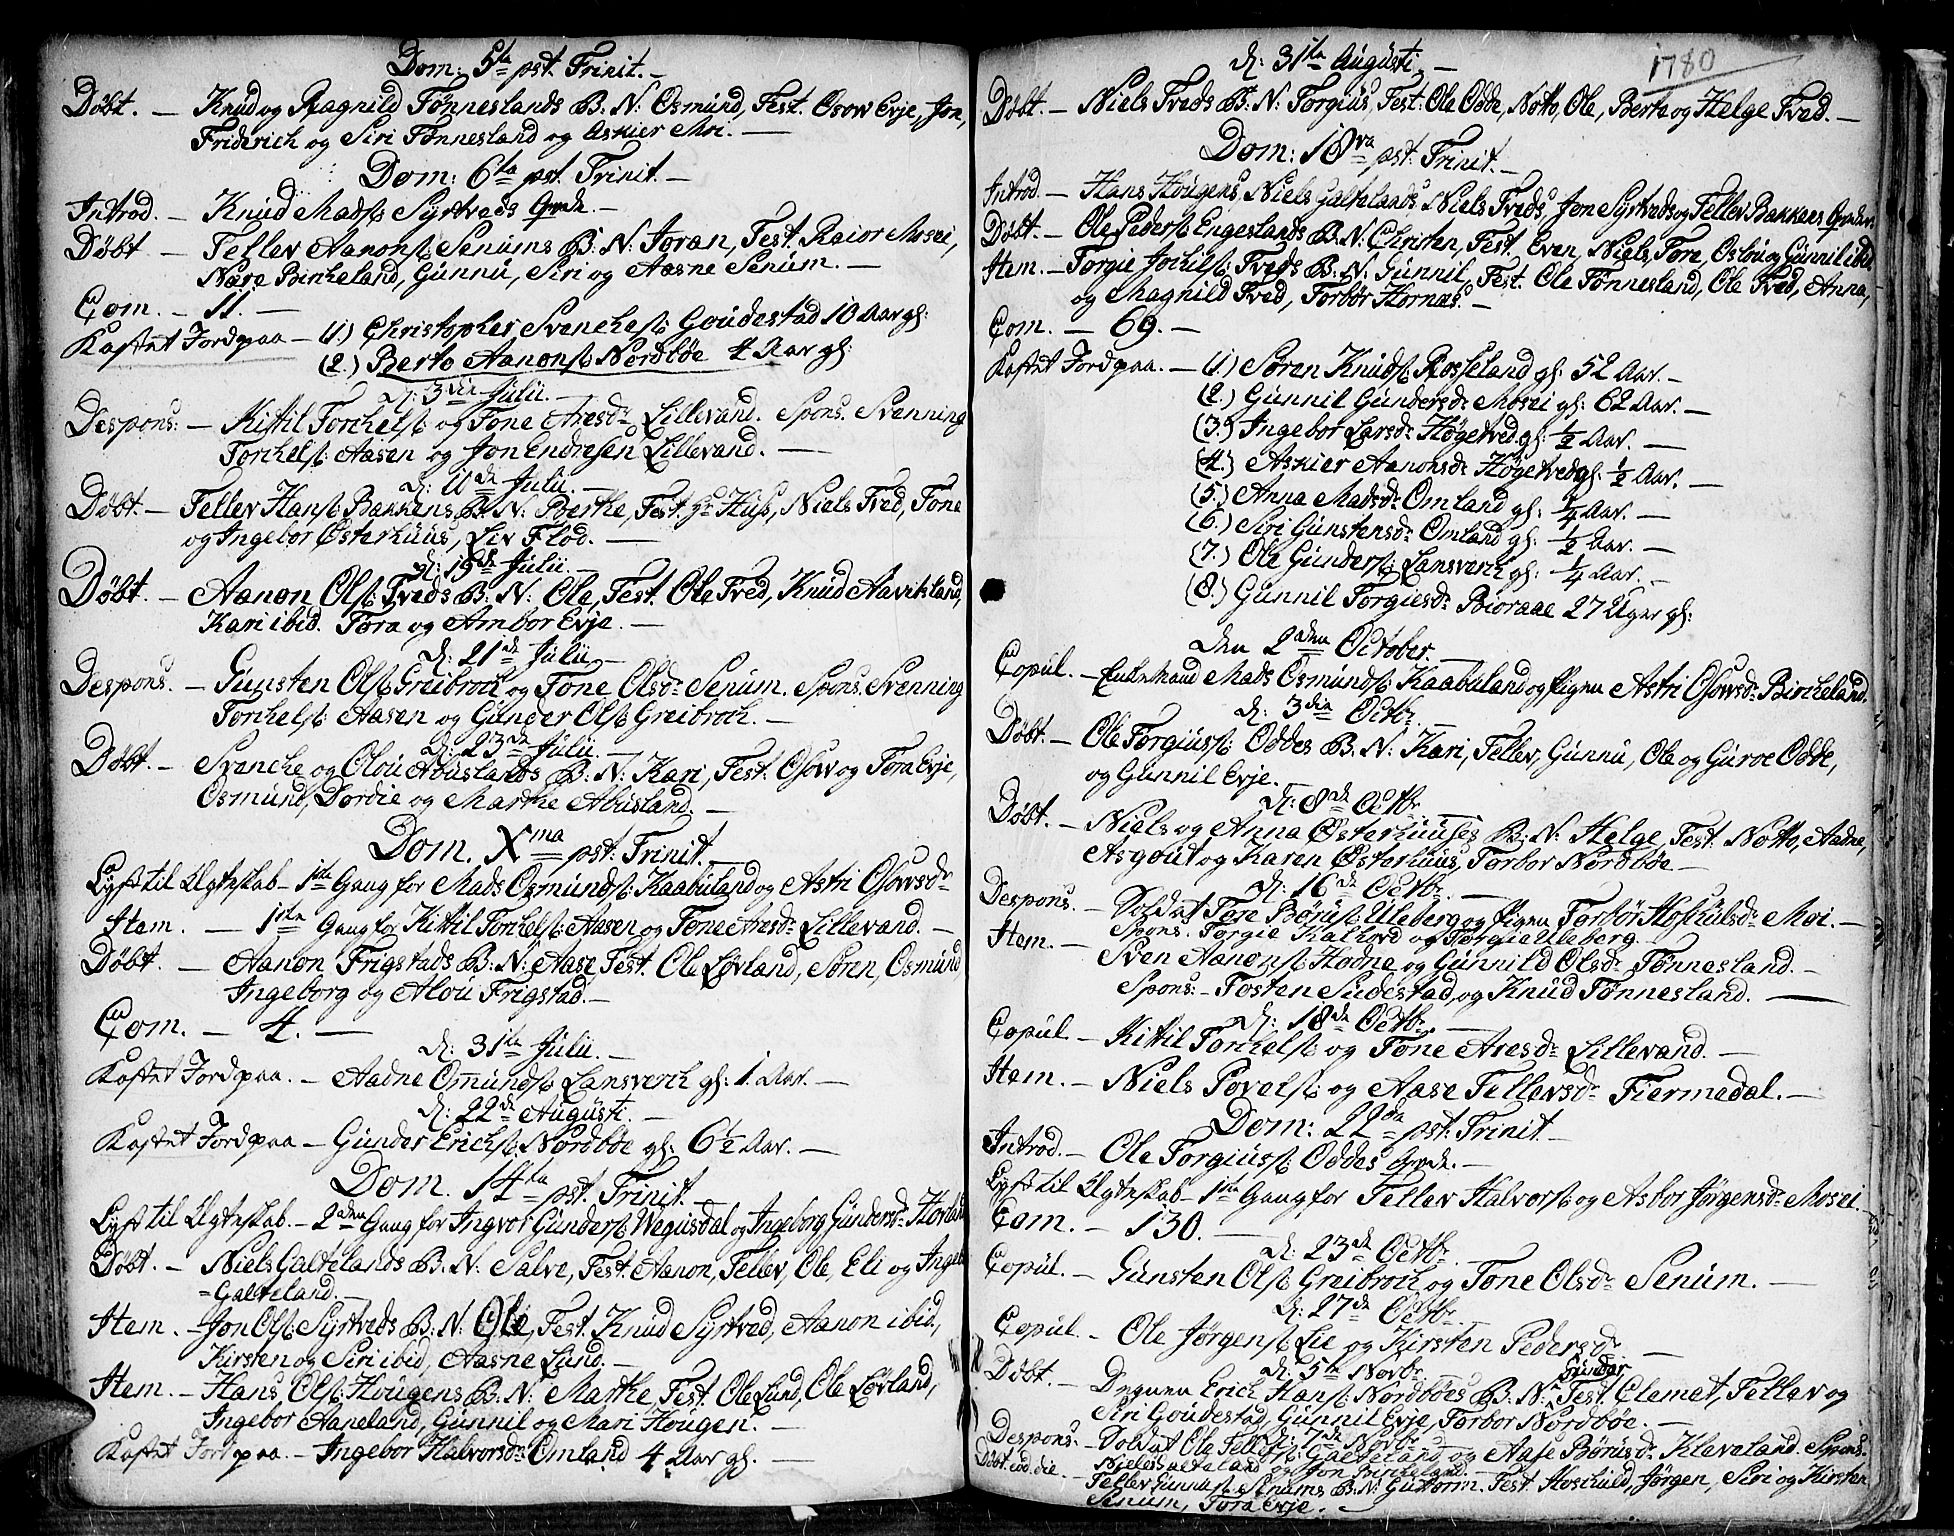 Dom: 5ta pst. Trinit. —
Døbt. — Knud og Ragnild Tønneslands B. N: Osmund, Test. Osow Evje, Jon,
Friderich og Siri Tønnesland og Askier Moi. —
Dom: 6ta pst. Trinit. —
Introd. — Knud Mads: Syrtveds Qvinde. —
Døbt — Tellev Aanons: Senums B: N: Joran, Test. Reior Mosei,
Nære Birkeland, Gunnu, Siri og Aasne Senum. —
Com. — 11. —
Kastet Jord paa — (1.) Christopher Svenches: Goudestad 10 Aar gl:
(2.) Berto Aanons: Nordbøe 4 Aar gl:
d: 3die Julii. —
Despons: — Kittil Torchels: og Tone Aresdr: Lillevand. Spons. Svenning
Torchels: Aasen og Jon Endresen Lillevand. —
d: 11de Julii. —
Døbt. — Tellev Hans: Bakkens B: N: Berthe, Test. Hr Huss, Niels Tved, Tone
og Ingebor Østerhuus, Liv Flod. —
d: 19de Julii. —
Døbt. — Aanon Ols: Tveds B: N: Ole, Test. Ole Tved, Knud Aavitsland,
Kari ibid. Tora og Ambor Evje. —
d: 21de Julii —
Despons. — Gunsten Ols: Greibroch og Tone Olsdr: Senum. Spons. Svenning
Torchels: Aasen og Gunder Ols: Greibroch. —
d: 23de Julii —
Døbt. — Svenche og Olou Abuslands B: N: Kari, Test. Osow og Tora Evje,
Osmund, Dordie og Marthe Abusland. —
Dom. Xma pst: Trinit. —
Lyst til Egteskab — 1ste Gang for Mads Osmunds: Kaabuland og Astri Osowsdr
Item. — 1ste Gang for Kittil Torchels: Aasen og Tone Aresdr: Lillevand. —
Døbt. — Aanon Frigstads B: N: Aase Test. Ole Løvland, Søren, Osmund,
Ingeborg og Alou Frigstad. —
Com. — 4. —
d: 31te Julii. —
Kastet Jord paa. — Aadne Omunds: Lansverch gl: 1. Aar. —
d: 22de Augusti. —
Kastet Jord paa — Gunder Erichs: Nordbøe gl: 6½ Aar. —
Dom. 14ta pst. Trinit. —
Lyst til Egteskab. — 2den Gang for Ingvor Gunders: Wegusdal og Ingeborg Gundersdr: Hovland
Døbt. — Niels Galtelands B: N: Salve, Test. Aanon, Tellev, Ole, Eli og Ingeb
=Galteland. —
Item. — Jon Ols: Syrtveds B: N: Ole, Test. Knud Syrtved, Aanon ibid.,
Kirsten og Siri ibid, Aasne Lund. —
Item. — Hans Ols: Hougens B: N: Marthe, Test. Ole Lund, Ole Løvland,
Ingebor Aaneland, Gunnil og Mari Hougen. —
Kastet Jord paa. — Ingebor Halvorsdr: Omland 4 Aar gl. —
1780
d: 31te Augusti. —
Døbt. — Niels Tveds B: N: Torgius, Test: Ole Odde, Notto, Ole, Berte og Helge Tved. —
Dom: 18va pst. Trinit. —
Introd. — Hans Hougens, Niels Galtelands, Niels Tveds, Jon Syrtveds og Tellev Bakkens Qvinder.
Døbt. — Ole Peders: Engeslands B: N: Christen, Test. Even, Niels, Tore, Oslou og Gunnil ibid.
Item. — Torgie Jochils: Tveds B: N: Gunnil, Test. Ole Tønnesland, Ole Tved, Anna,
og Magnild Tved, Torbør Hornæs. —
Com. — 69. —
Kastet Jord paa. — (1.) Søren Knuds: Rosseland gl: 52 Aar. —
(2.) Gunnil Gundersdr: Mosei gl: 62 Aar. —
(3.) Ingebor Larsdr: Høgetved gl: ½ Aar. —
(4.) Askier Aanonsdr: Høgetved gl: ½ Aar. —
(5.) Anna Madsdr: Omland gl: ¼ Aar. —
(6.) Siri Gunstensdr: Omland gl: ½ Aar. —
(7.) Ole Gunders: Lansverch gl: ¼ Aar. —
(8.) Gunnil Torgiesdr: Bioraae 27 Uger gl:
Den 2den October. —
Copul. — Enkemand Mads Osmunds: Kaabuland og Pigen Astri Osowsdr: Bircheland.
d: 3die Octbr. —
Døbt. — Ole Torgius: Oddes B: N: Kari, Tellev, Gunnu, Ole og Guroe Odde,
og Gunnil Evje. —
d: 8de Octbr —
Døbt. — Niels og Anna Østerhuuses B: N: Helge, Test. Notto, Aadne,
Asgout og Karen Østerhuus, Torbor Nordbøe —
d: 16de Octbr —
Despons. — Soldat Tore Børus: Uleberg og Pigen Torbør Hoskulsdr: Moi. —
Spons. Torgie Kallevd og Torgie Uleberg. —
Item. — Sven Aanons: Hodne og Gunnild Olsdr: Tønnesland. —
Spons: — Tosten Sudestad, og Knud Tønnesland. —
d: 18de Octbr. —
Copul — Kittil Torchels: og Tone Aresdr: Lillevand. —
Item. — Niels Povels: og Aase Tellevsdr: Fiermedal. —
Dom: 22da pst: Trinit. —
Introd. — Ole Torgius: Oddes Qvinde. —
Lyst til Egteskab — 1ste Gang for Tellev Halvors: og Asbor Jørgensdr: Mosei.
Com. — 130. —
d: 23de Octbr —
Copul. — Gunsten Ols: Greibroch og Tone Olsdr: Senum. —
d: 27de Octbr. —
Copul. — Ole Jørgens: Lie og Kirsten Pedersdr —
d: 5te Novbr —
Døbt. — Degnen Erich Hans: Nordbøes B: N: Gunder Test. Clemet, Tellev og
Siri Goudestad, Gunnil Evje, Torbor Nordbøe. —
d: 7de Novbr —
Despons: — Soldat Ole Tellevs: Galteland og Aase Børusdr: Kleveland. Spons.
Niels Galteland og Jon Bircheland. —
Døbt. eod. die. — Tellev Gunnars: Senums B: N: Guttorm. Test. Hoschuld, Jørgen, Siri og Kirsten
Senum, Tora Evje. —